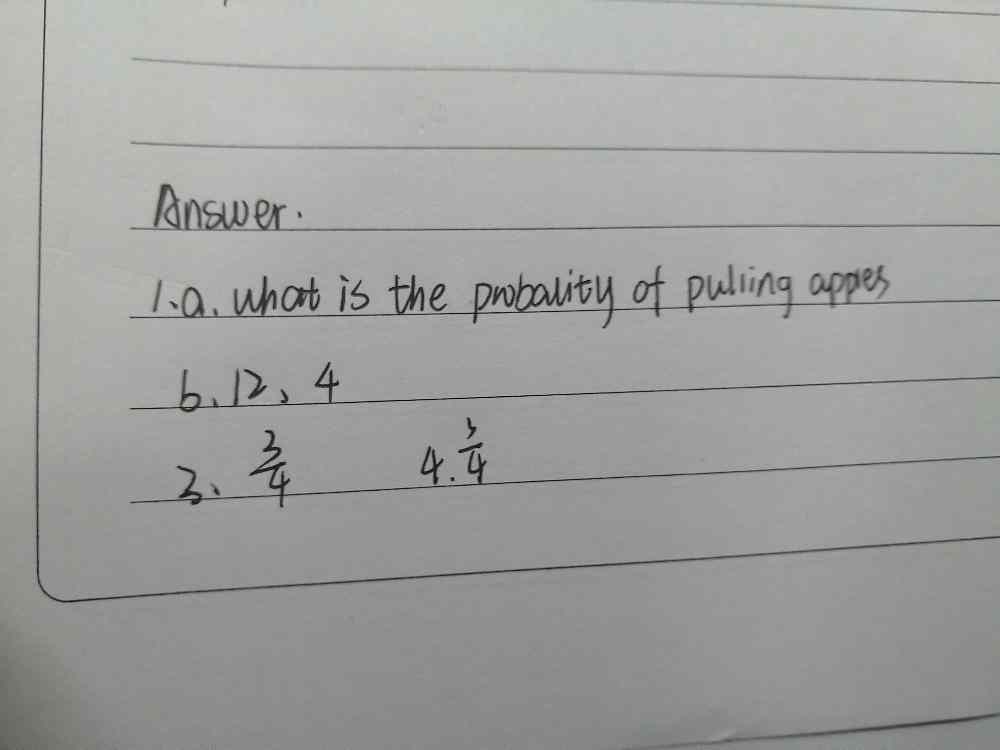 Answer.
1.a. what is the probality of pulling apples
b. 12、4
3、 3/4 4. 3/4